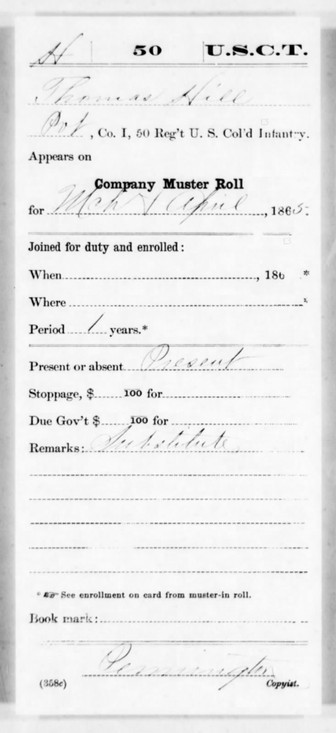 H 50 U.S.C.T.
Thomas Hill
Pvt, Co. I, 50 Reg't U. S. Col'd Infantry.
Appears on
Company Muster Roll
for Mch & April, 1865.
Joined for duty and enrolled:
When, 186 *
Where *
Period 1 years.*
Present or absent Present
Stoppage, $ 100 for
Due Gov't $ 100 for
Remarks: Substitute
* ☞ See enrollment on card from muster-in roll.
Book mark:
Pennington
(358c) Copyist.